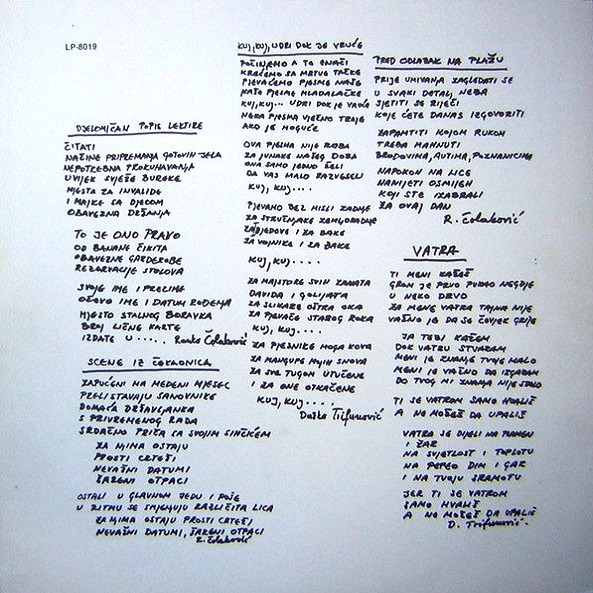 LP-8019
DJELOMIČAN POPIS LEKTIRE
ČITATI
NAČINE PRIPREMANJA GOTOVIH JELA
NEPOTREBNA PROKUHAVANJA
UVIJEK SVJEŽE BUREKE
MJESTA ZA INVALIDE
I MAJKE SA DJECOM
OBAVEZNA DRŽANJA
TO JE ONO PRAVO
OD BANANE ČIKITA
OBAVEZNE GARDEROBE
REZERVACIJE STOLOVA
SVOJE IME I PREZIME
OČEVO IME I DATUM ROĐENJA
MJESTO STALNOG BORAVKA
BROJ LIČNE KARTE
IZDATE U ..... Ranko Čolaković
SCENE IZ ČEKAONICA
ZAPUĆENI NA MEDENI MJESEC
PRELISTAVAJU SANOVNIKE
DOMAĆA DRŽAVLJANKA
S PRIVREMENOG RADA
SRDAČNO PRIČA SA SVOJIM SINČIĆEM
ZA NJIMA OSTAJU
PROSTI CRTEŽI
NEVAŽNI DATUMI
ŠARENI OTPACI
OSTALI U GLAVNOM JEDU I PUŠE
U RITMU SE SMJENJUJU RAZLIČITA LICA
ZA NJIMA OSTAJU PROSTI CRTEŽI
NEVAŽNI DATUMI, ŠARENI OTPACI
R. Čolaković
KUJ, KUJ, UDRI DOK JE VRUĆE
POČINJEMO A TO ZNAČI
KREĆEMO SA MRTVE TAČKE
PJEVAĆEMO PJESME NAŠE
NAŠE PJESME MLADALAČKE
KUJ, KUJ... UDRI DOK JE VRUĆE
NEKA PJESMA VJEČNO TRAJE
AKO JE MOGUĆE
OVA PJESMA NIJE ROBA
ZA JUNAKE NAŠEG DOBA
ONA SAMO JEDNO ŽELI
DA VAS MALO RAZVESELI
KUJ, KUJ....
PJEVAMO BEZ MISLI ZADNJE
ZA STRUČNJAKE ZEMLJORADNJE
ZA DJEDOVE I ZA BAKE
ZA VOJNIKE I ZA ĐAKE
KUJ, KUJ....
ZA MAJSTORE SVIH ZANATA
DAVIDA I GOLIJATA
ZA SLIKARE OŠTRA OKA
ZA PJEVAČE STAROG ROKA
KUJ, KUJ....
ZA PJESNIKE MOGA KOVA
ZA MANGUPE MOJIH SNOVA
ZA SVE TUGOM UTUČENE
I ZA ONE OTKAČENE
KUJ, KUJ....
Duško Trifunović
PRED ODLAZAK NA PLAŽU
PRIJE UMIVANJA ZAGLEDATI SE
U SVAKI DETALJ NEBA
SJETITI SE RIJEČI
KOJE ĆETE DANAS IZGOVORITI
ZAPAMTITI KOJOM RUKOM
TREBA MAHNUTI
BRODOVIMA, AUTIMA, POZNANICIMA
NAPOKON NA LICE
NANIJETI OSMIJEH
KOJI STE IZABRALI
ZA OVAJ DAN
R. Čolaković
VATRA
TI MENI KAŽEŠ
GROM JE PRVO PUKAO NEGDJE
U NEKO DRVO
ZA MENE VATRA TAJNA NIJE
VAŽNO JE DA SE ČOVJEK GRIJE
JA TEBI KAŽEM
DOK VATRU STVARAM
MENI JE ZNANJE TVOJE MALO
MENI JE VAŽNO DA IZGARAM
DO TVOG MI ZNANJA NIJE STALO
TI SE VATROM SAMO HVALIŠ
A NE MOŽEŠ DA UPALIŠ
VATRA SE DIJELI NA PLAMEN
I ŽAR
NA SVJETLOST I TOPLOTU
NA PEPEO DIM I GAR
I NA TVOJU SRAMOTU
JER TI SE VATROM
SAMO HVALIŠ
A NE MOŽEŠ DA UPALIŠ
D. Trifunović.